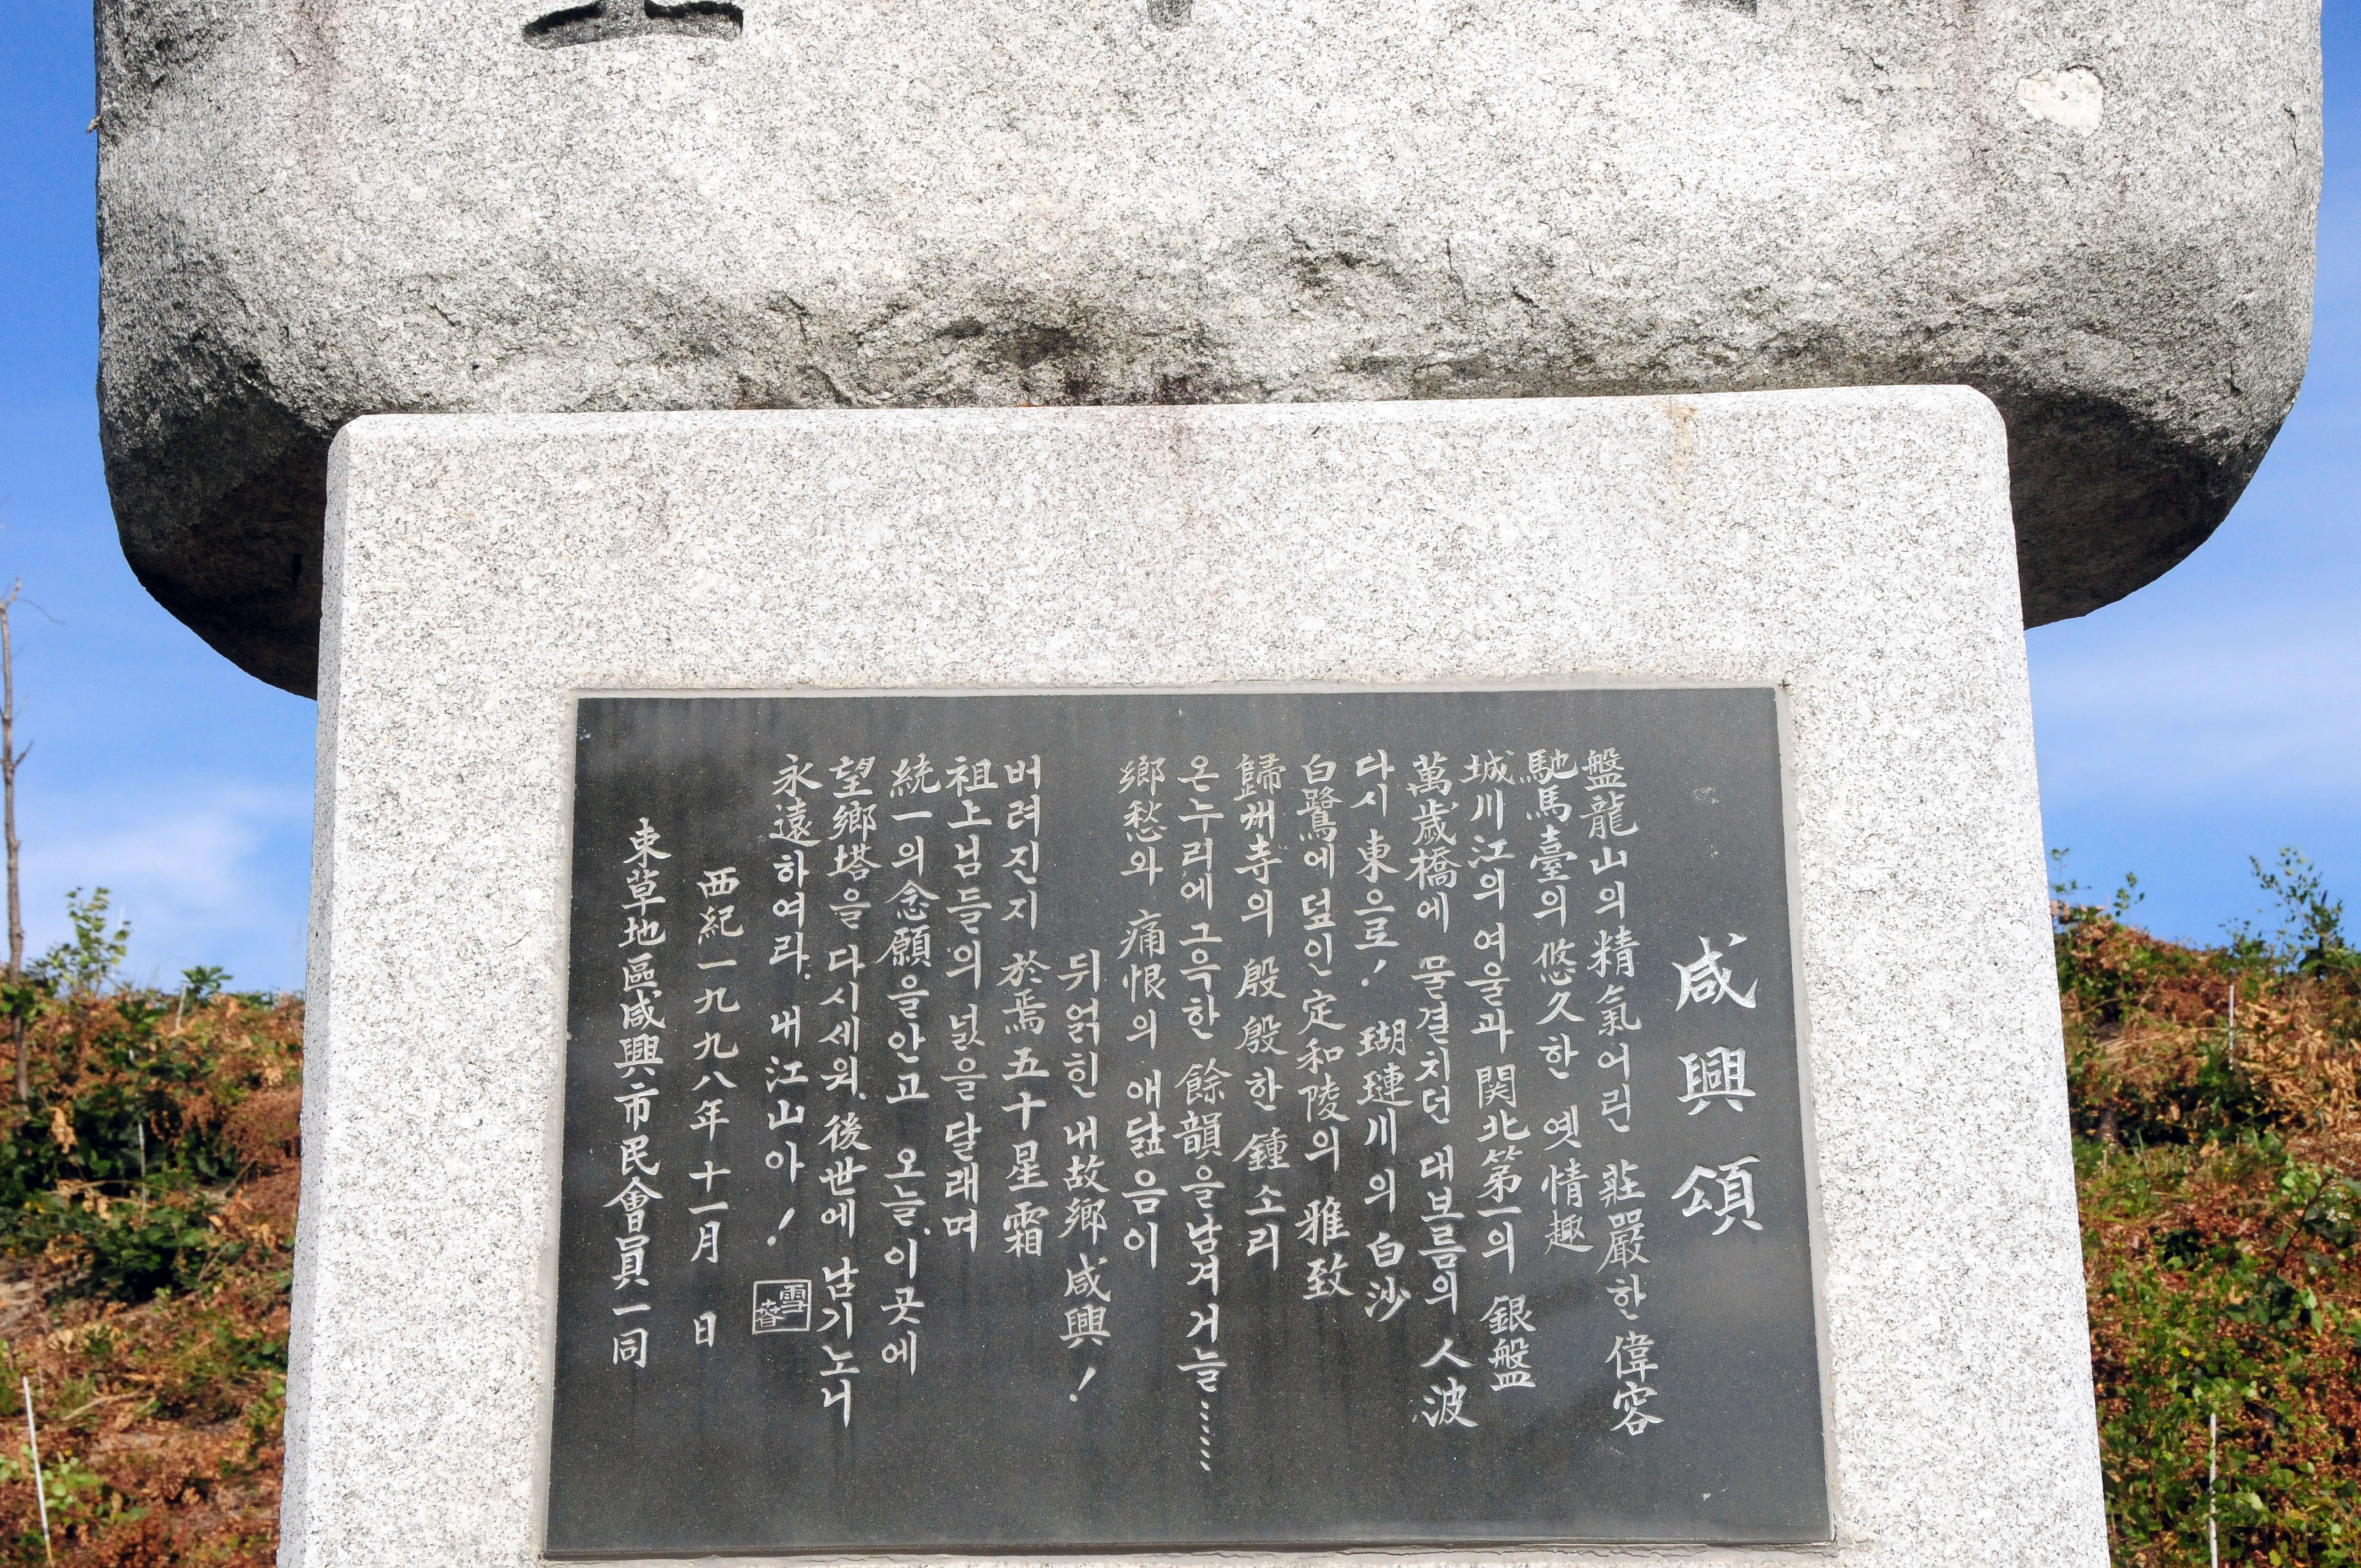 咸興頌
盤龍山의 精氣어린 莊嚴한 偉容
馳馬臺의 悠久한 옛 情趣
城川江의 여울과 関北第一의 銀盤
萬歲橋에 물결치던 대보름의 人波
다시 東으로! 瑚璉川의 白沙
白鷺에 덮인 定和陵의 雅致
歸州寺의 殷殷한 鍾소리
온누리에 그윽한 餘韻을 남겨거늘……
鄕愁와 痛恨의 애닯음이
뒤얽힌 내故鄕 咸興!
버려진지 於焉 五十星霜
祖上님들의 넋을 달래며
統一의 念願을 안고 오늘, 이곳에
望鄕塔을 다시세워, 後世에 남기노니
永遠하여라, 내江山아!
雪春
西紀一九九八年十一月 日
束草地區咸興市民會員一同